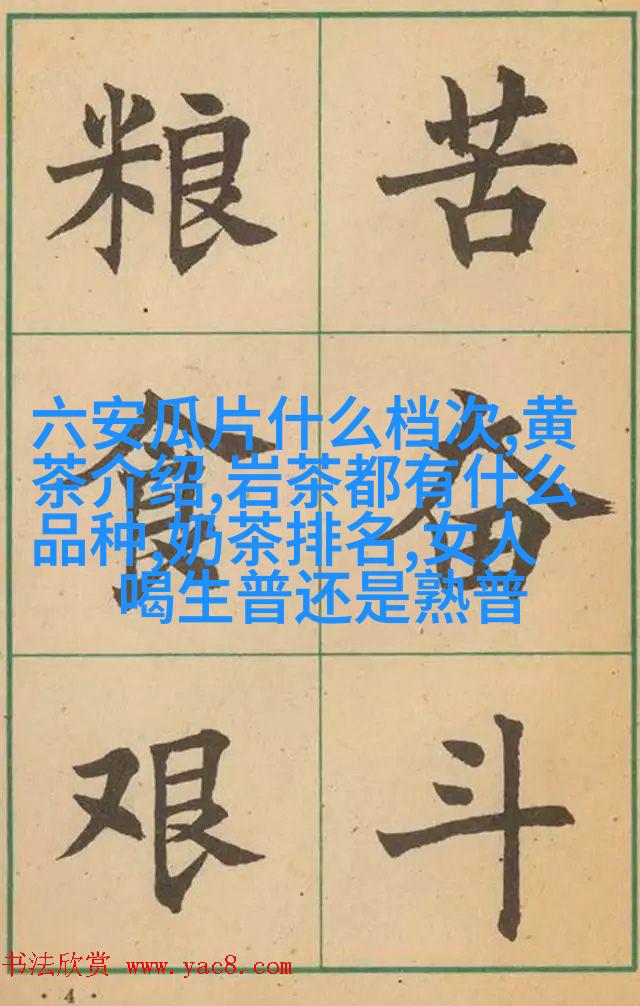 粮食艰
苦奋斗
六安瓜片什么档次,黄
茶介绍,岩茶都有什么
品种,奶茶排名,女人
喝生普还是熟普
书法欣赏 www.yac8.com
· 4 ·